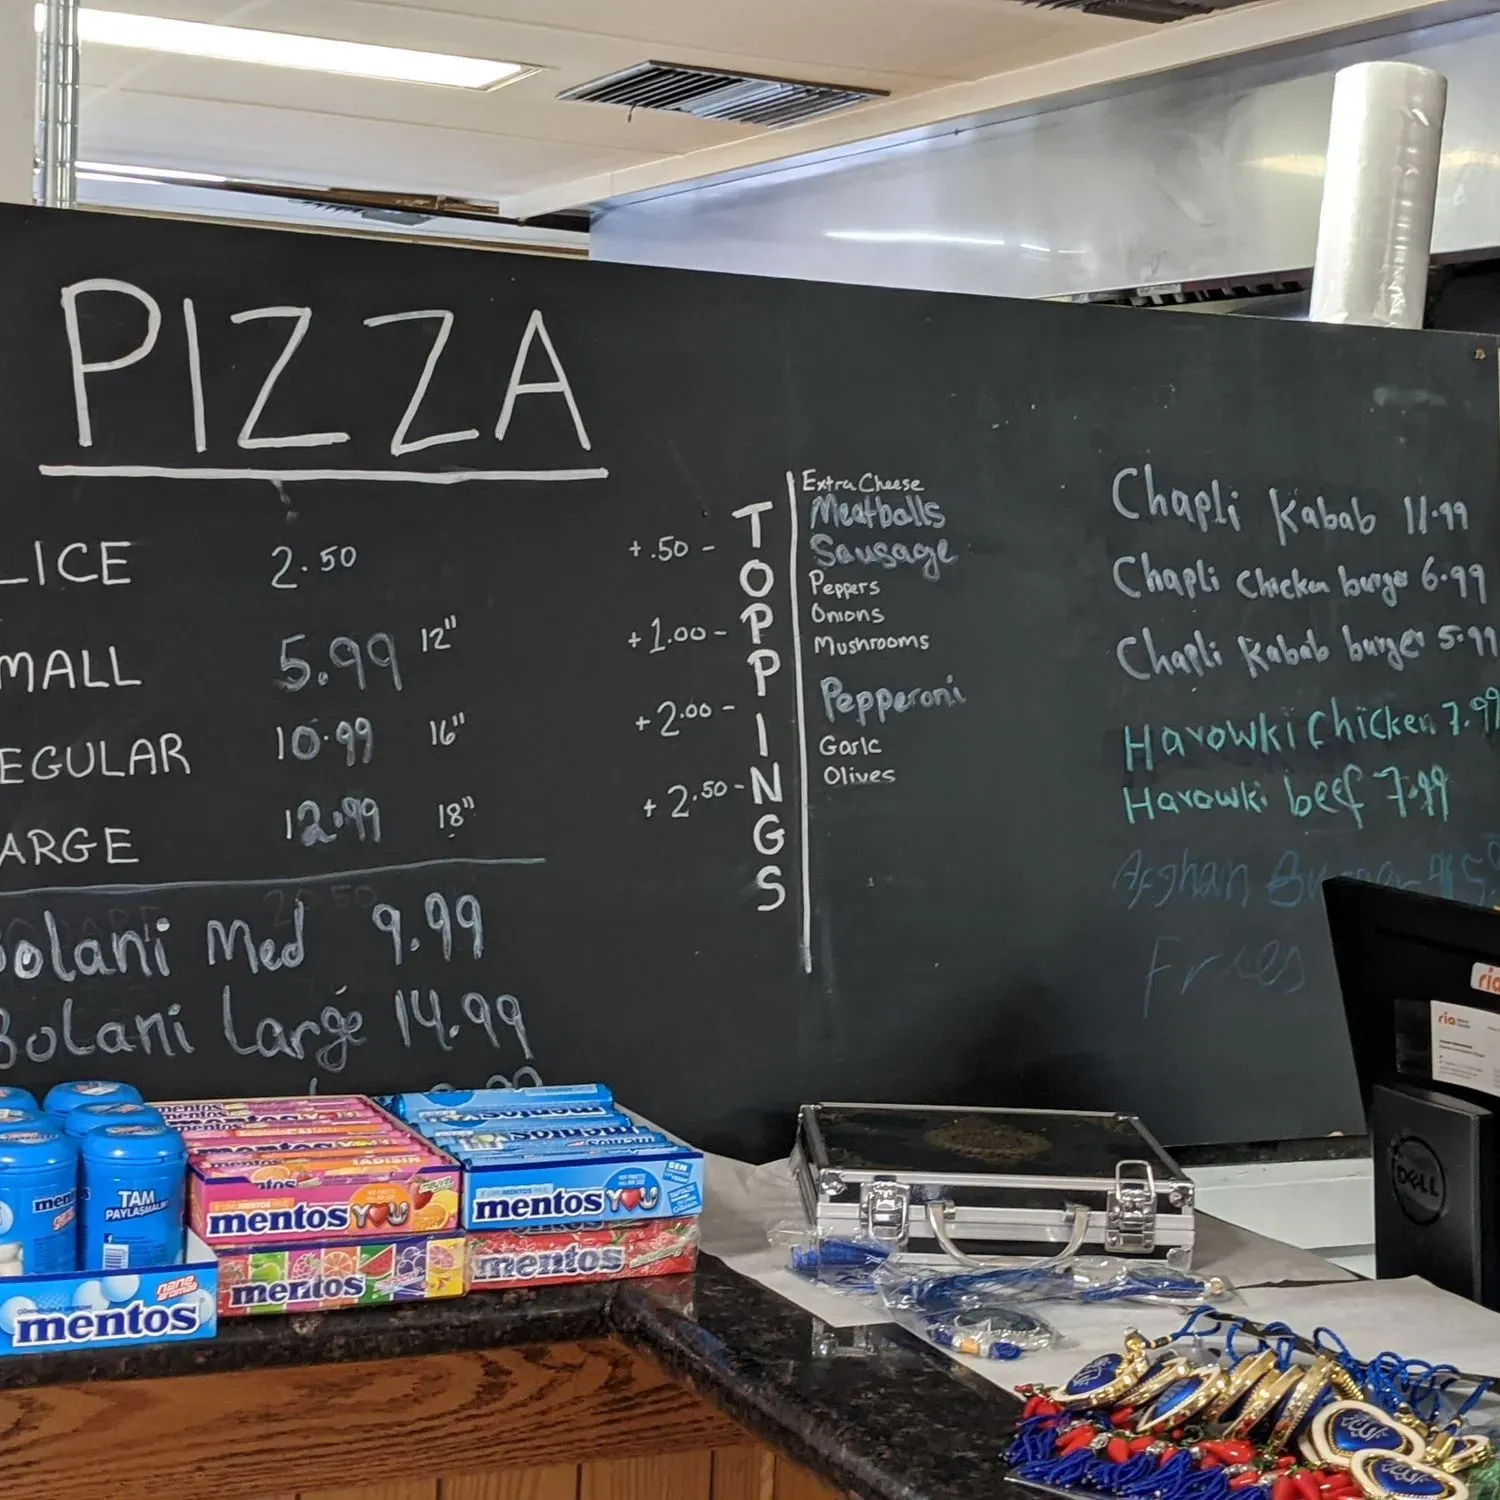 PIZZA
LICE 2.50
MALL 5.99 12"
EGULAR 10.99 16"
ARGE 12.99 18"
olani Med 9.99
Bolani Large 14.99
+ .50 -
+ 1.00 -
+ 2.00 -
+ 2.50 -
TOPPINGS
Extra Cheese
Meatballs
Sausage
Peppers
Onions
Mushrooms
Pepperoni
Garlc
Olives
Chapli Kabab 11.99
Chapli Chicken burger 6.99
Chapli Kabab burger 5.99
Harowki Chicken 7.99
Harowki beef 7.99
Afghan
Fries
mentos
mentos YOU
mentos YOU
mentos
mentos
TAM
PAYLAŞMALIK
mentos
nane
aroması
ria
ria
DELL